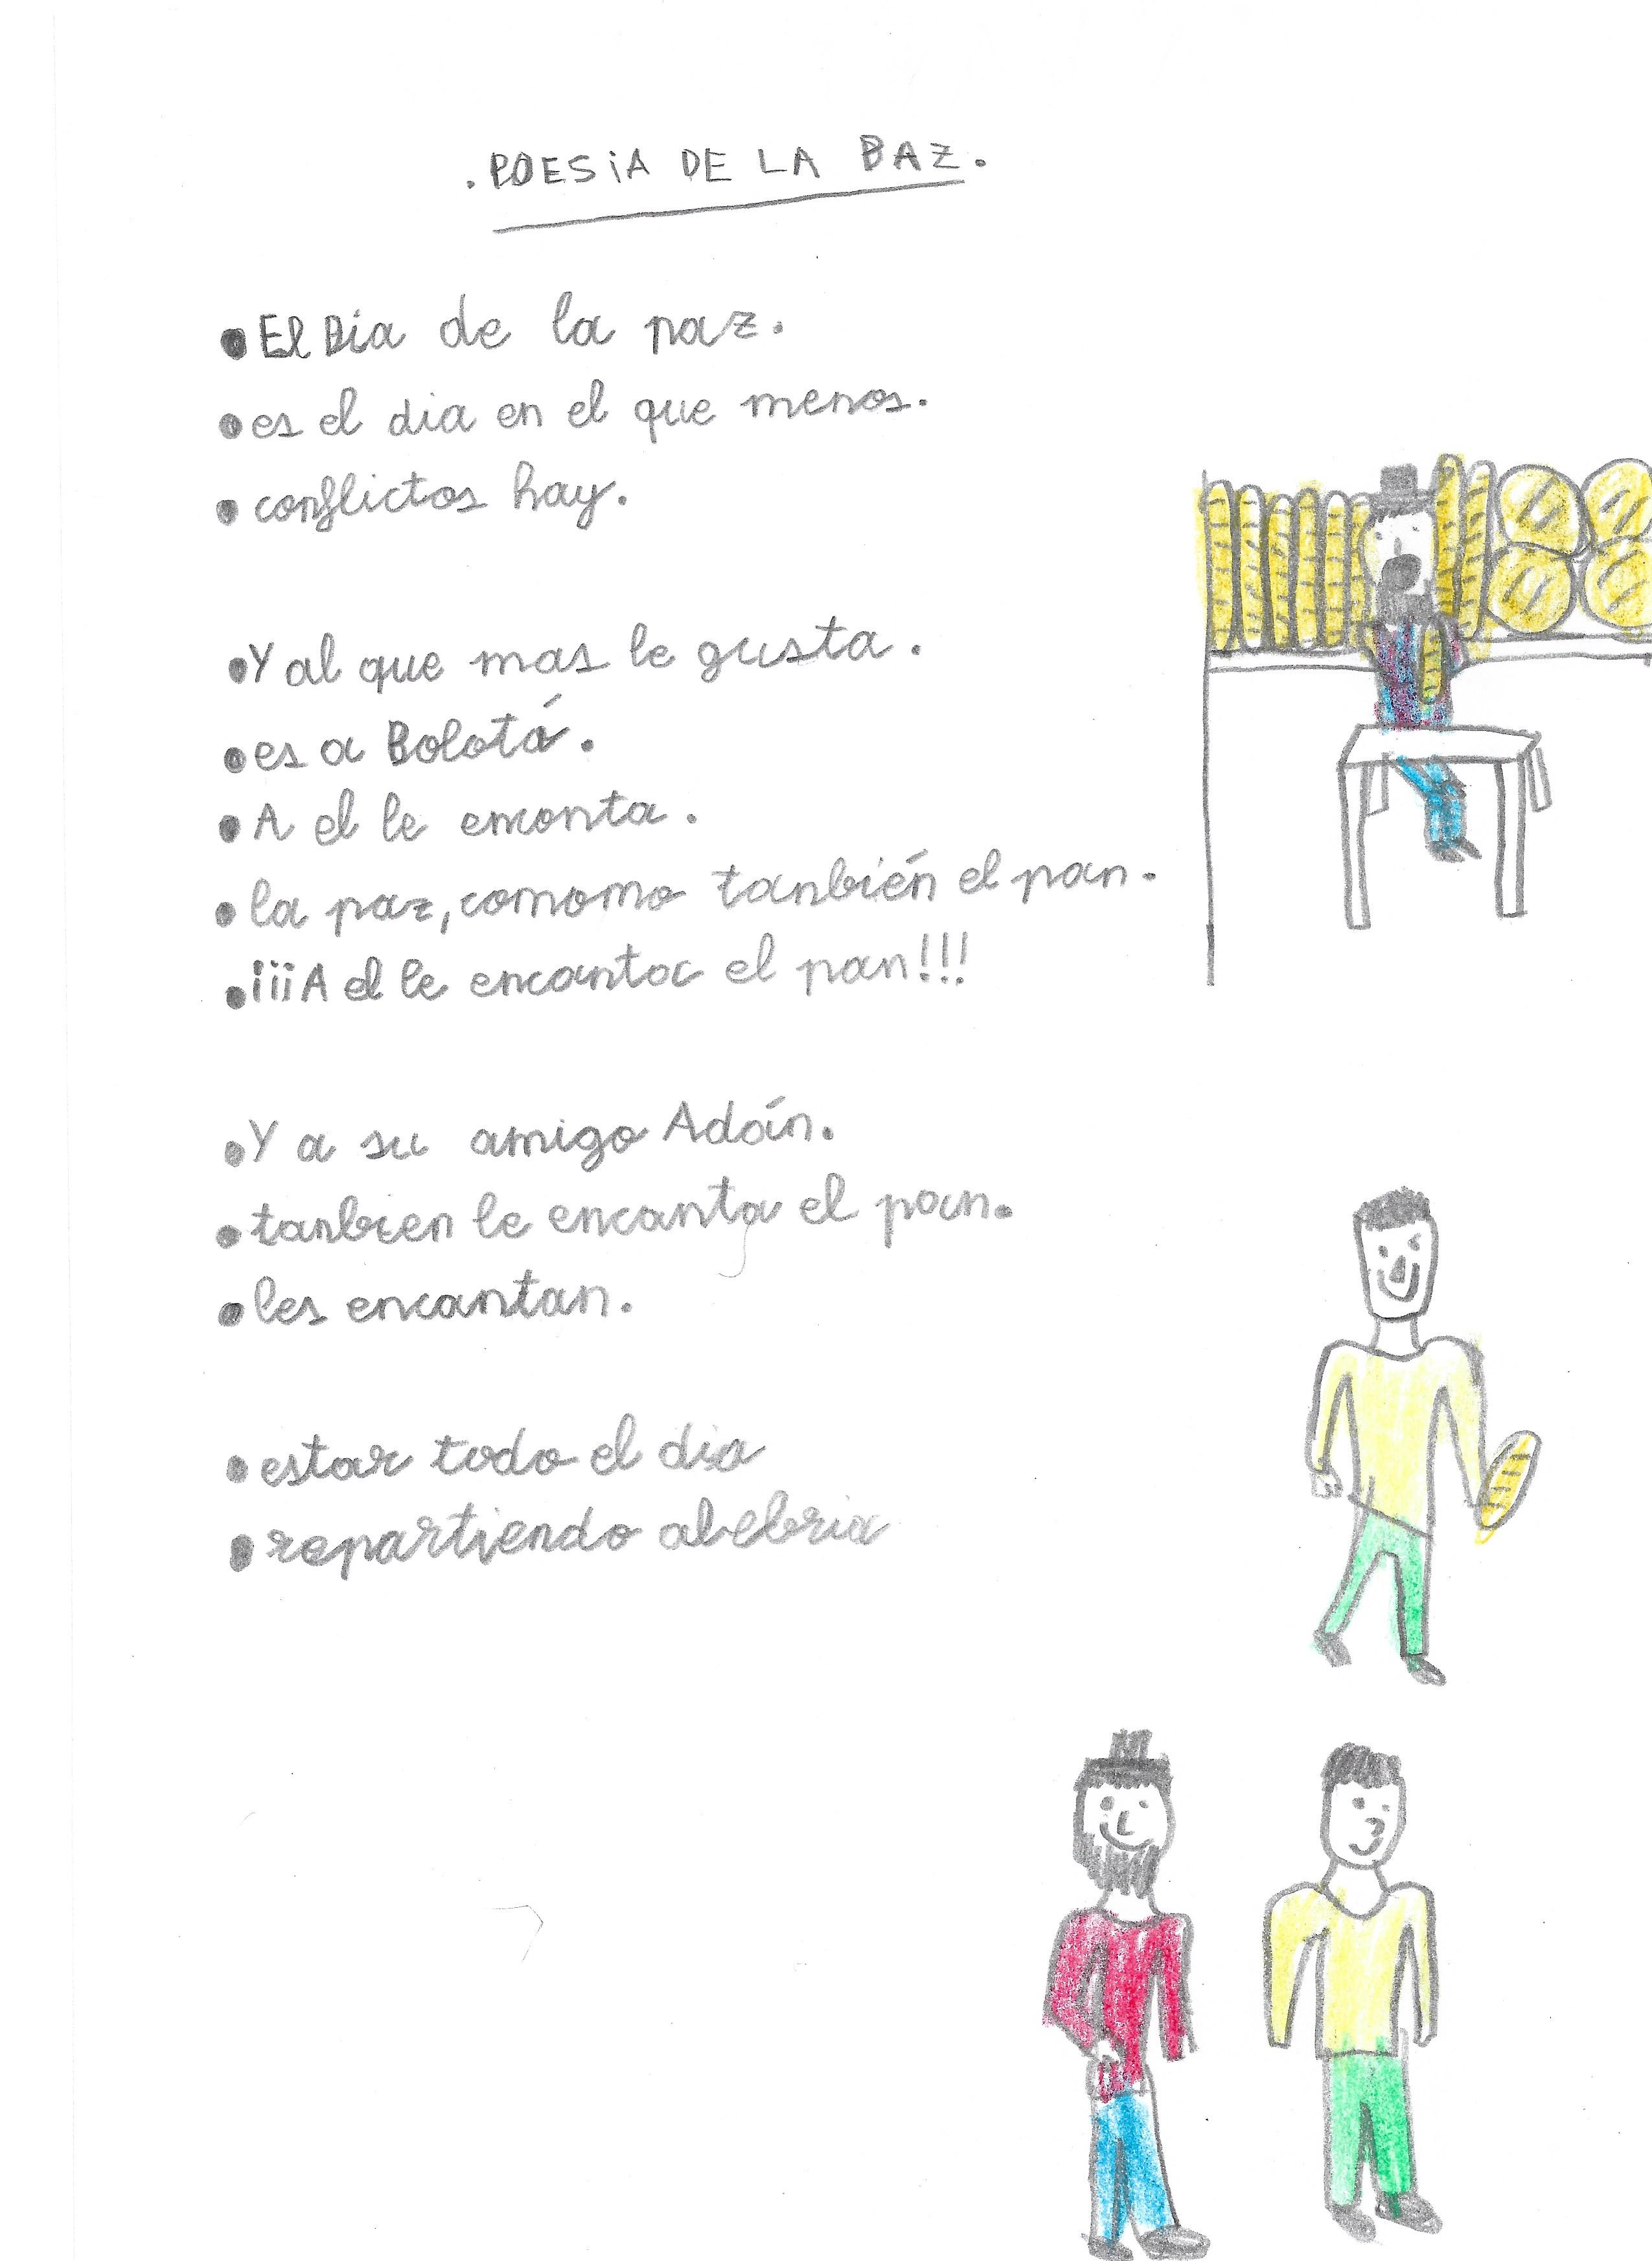 . POESiA DE LA BAZ.
• El Dia de la paz.
• es el dia en el que menos.
• conflictos hay.
• Y al que mas le gusta.
• es a Bolotá.
• A el le enconta.
• la paz, comomo tanbién el pan.
• ¡¡¡A el le encanta el pan!!!
• Y a su amigo Adán.
• tanbien le encanta el pan.
• les encantan.
• estar todo el dia
• repartiendo alebria